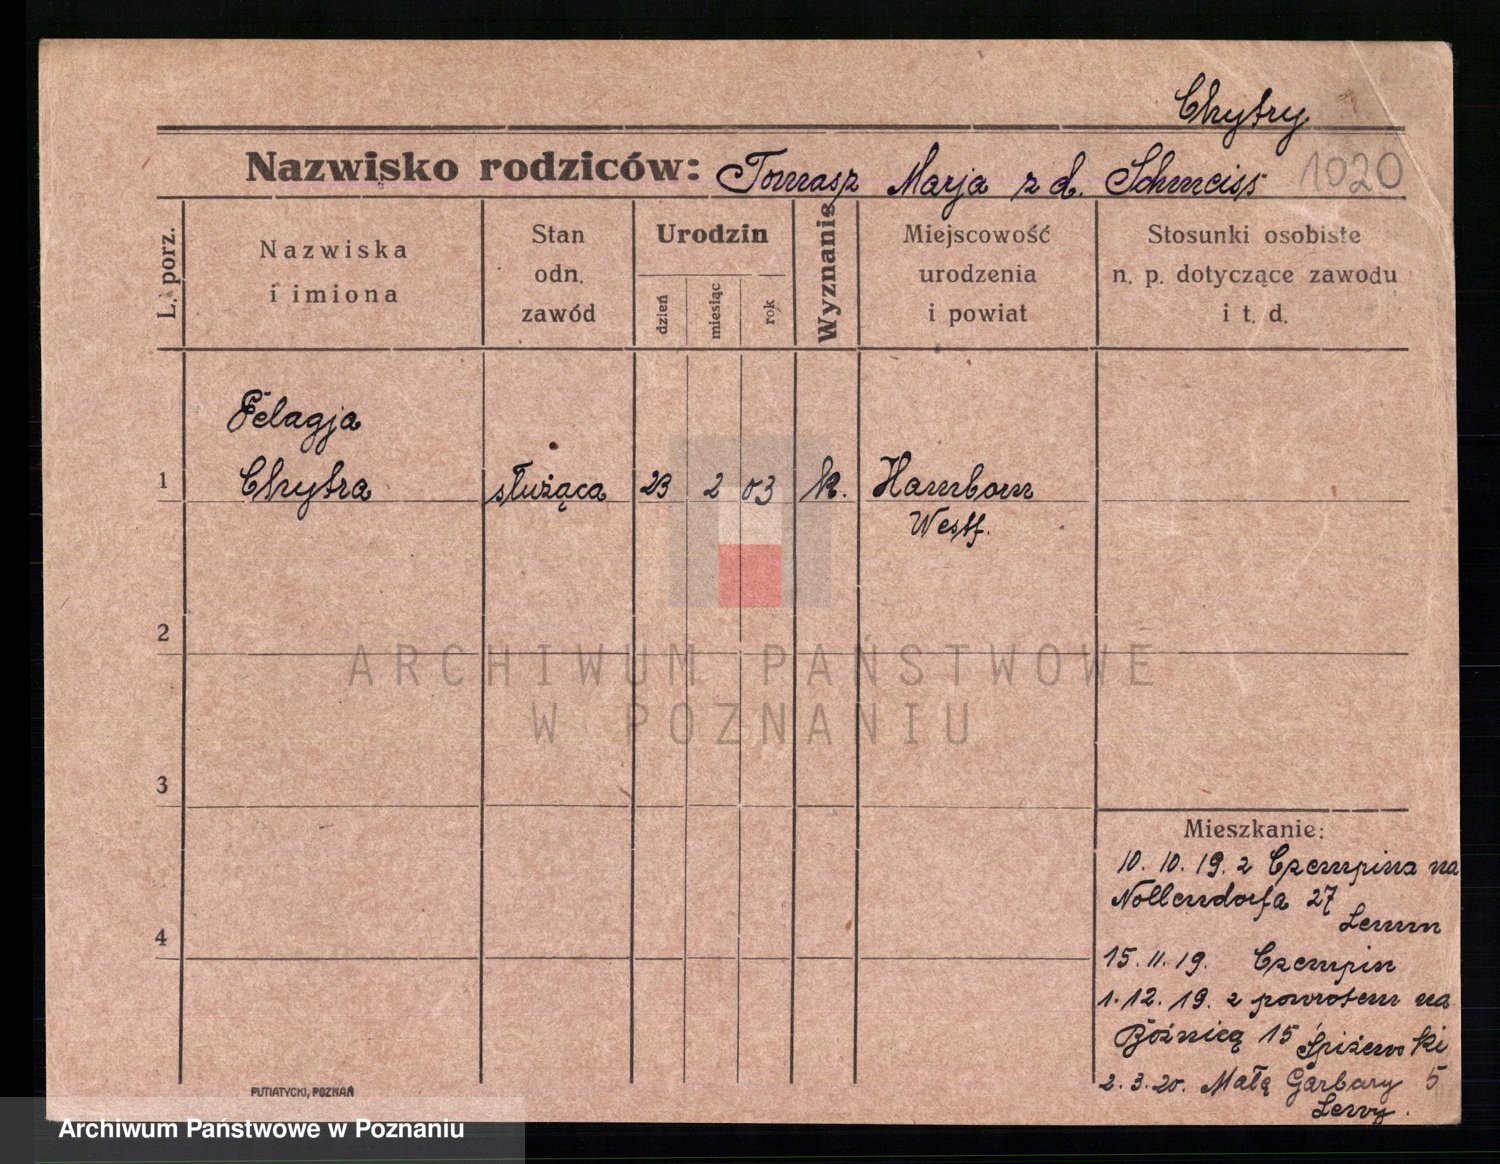 Chytry
Nazwisko rodziców: Tomasz Marja z d. Schmeiss 1020
L. porz.
Nazwiska
i imiona
Stan
odn.
zawód
Urodzin
dzień
miesiąc
rok
Wyznanie
Miejscowość
urodzenia
i powiat
Stosunki osobiste
n. p. dotyczące zawodu
i t. d.
Pelagja
1 Chytra służąca 23 2 03 k. Hamborn
Westf.
2
3
4
ARCHIWUM PAŃSTWOWE
W POZNANIU
Mieszkanie:
10. 10. 19. z Czempina na
Nollendorfa 27
15. 11. 19. Czempin
1. 12. 19. z powrotem na
Bóżnicą 15 Śpiżewski
2. 3. 20. Małą Garbary 5
PUTIATYCKI, POZNAŃ
Archiwum Państwowe w Poznaniu